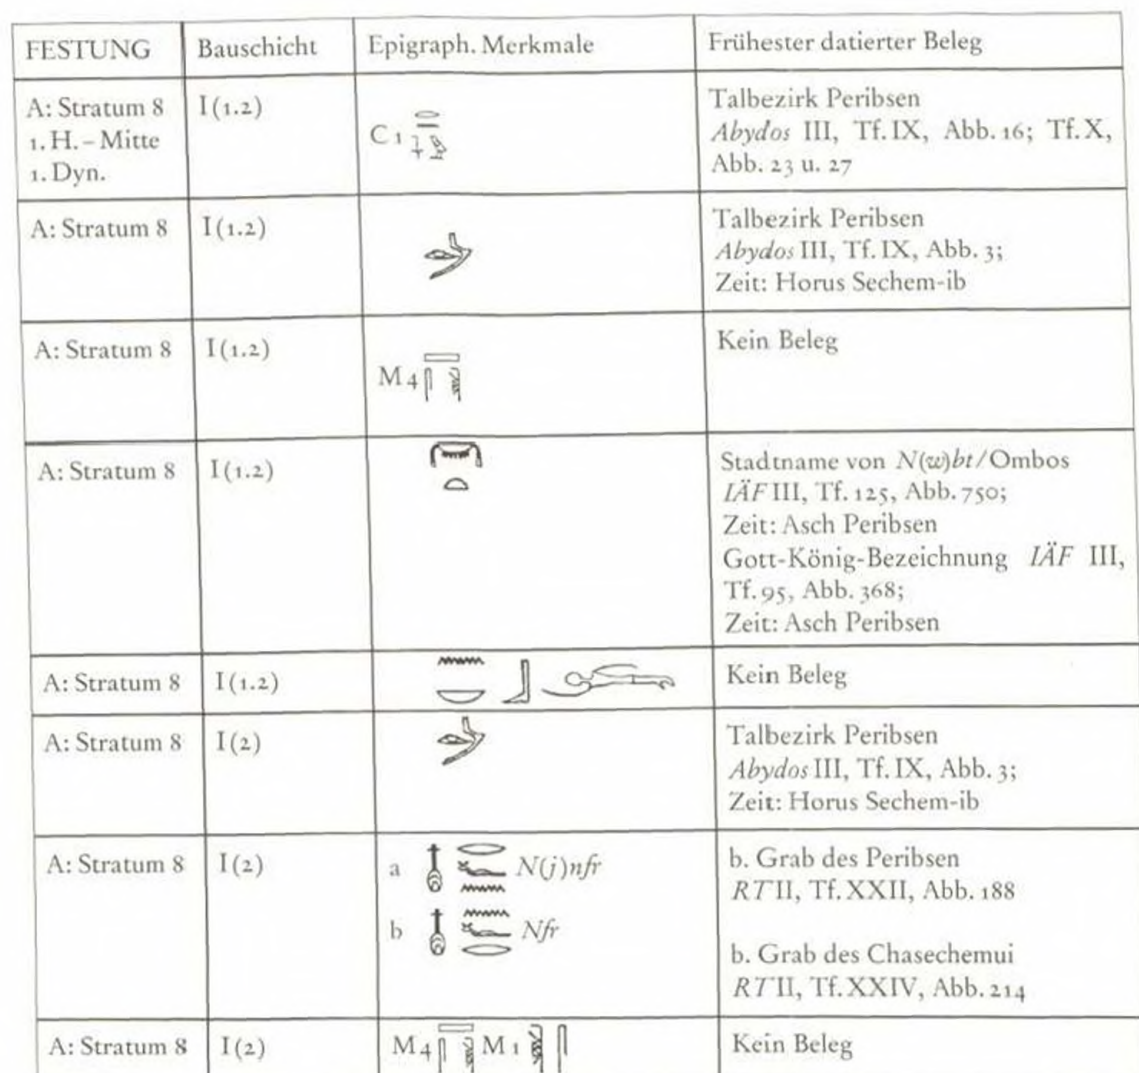 FESTUNG Bauschicht Epigraph. Merkmale Frühester datierter Beleg
A: Stratum 8 I (1.2) Talbezirk Peribsen
1. H. – Mitte C 1 Abydos III, Tf. IX, Abb. 16; Tf. X,
1. Dyn. Abb. 23 u. 27
A: Stratum 8 I (1.2) Talbezirk Peribsen
Abydos III, Tf. IX, Abb. 3;
Zeit: Horus Sechem-ib
A: Stratum 8 I (1.2) Kein Beleg
M 4
A: Stratum 8 I (1.2) Stadtname von N(w)bt/Ombos
IÄF III, Tf. 125, Abb. 750;
Zeit: Asch Peribsen
Gott-König-Bezeichnung IÄF III,
Tf. 95, Abb. 368;
Zeit: Asch Peribsen
A: Stratum 8 I (1.2) Kein Beleg
A: Stratum 8 I (2) Talbezirk Peribsen
Abydos III, Tf. IX, Abb. 3;
Zeit: Horus Sechem-ib
A: Stratum 8 I (2) a N(j)nfr b. Grab des Peribsen
RT II, Tf. XXII, Abb. 188
b Nfr
b. Grab des Chasechemui
RT II, Tf. XXIV, Abb. 214
A: Stratum 8 I (2) M 4 M 1 Kein Beleg